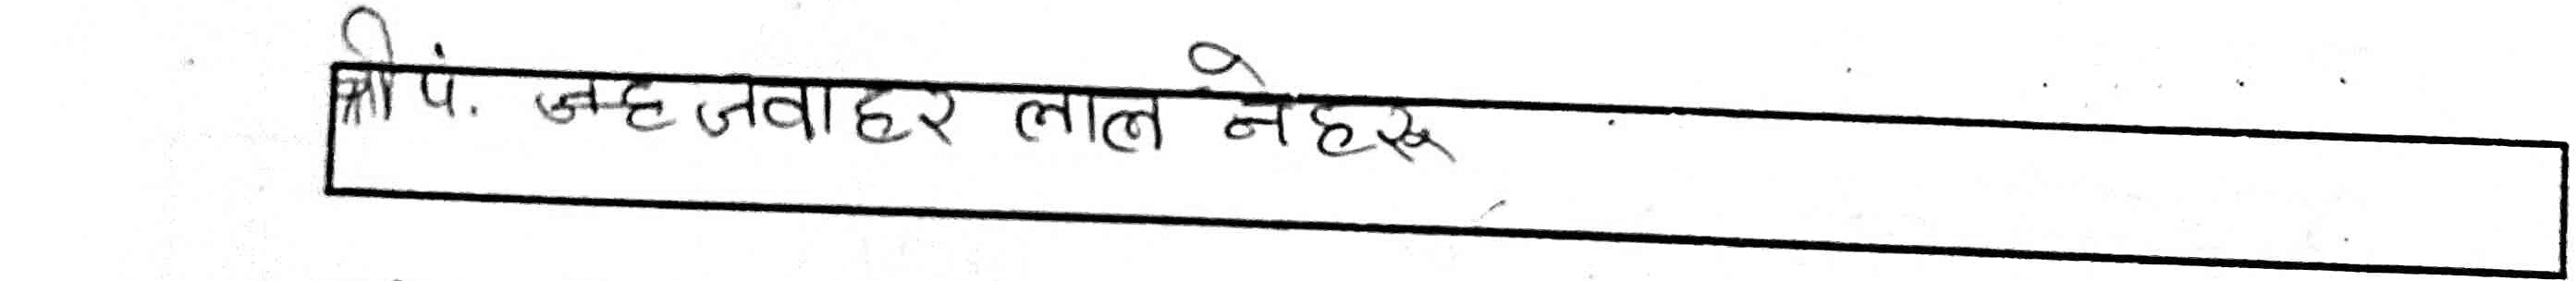 श्री पं. जह जवाहर लाल नेहरू